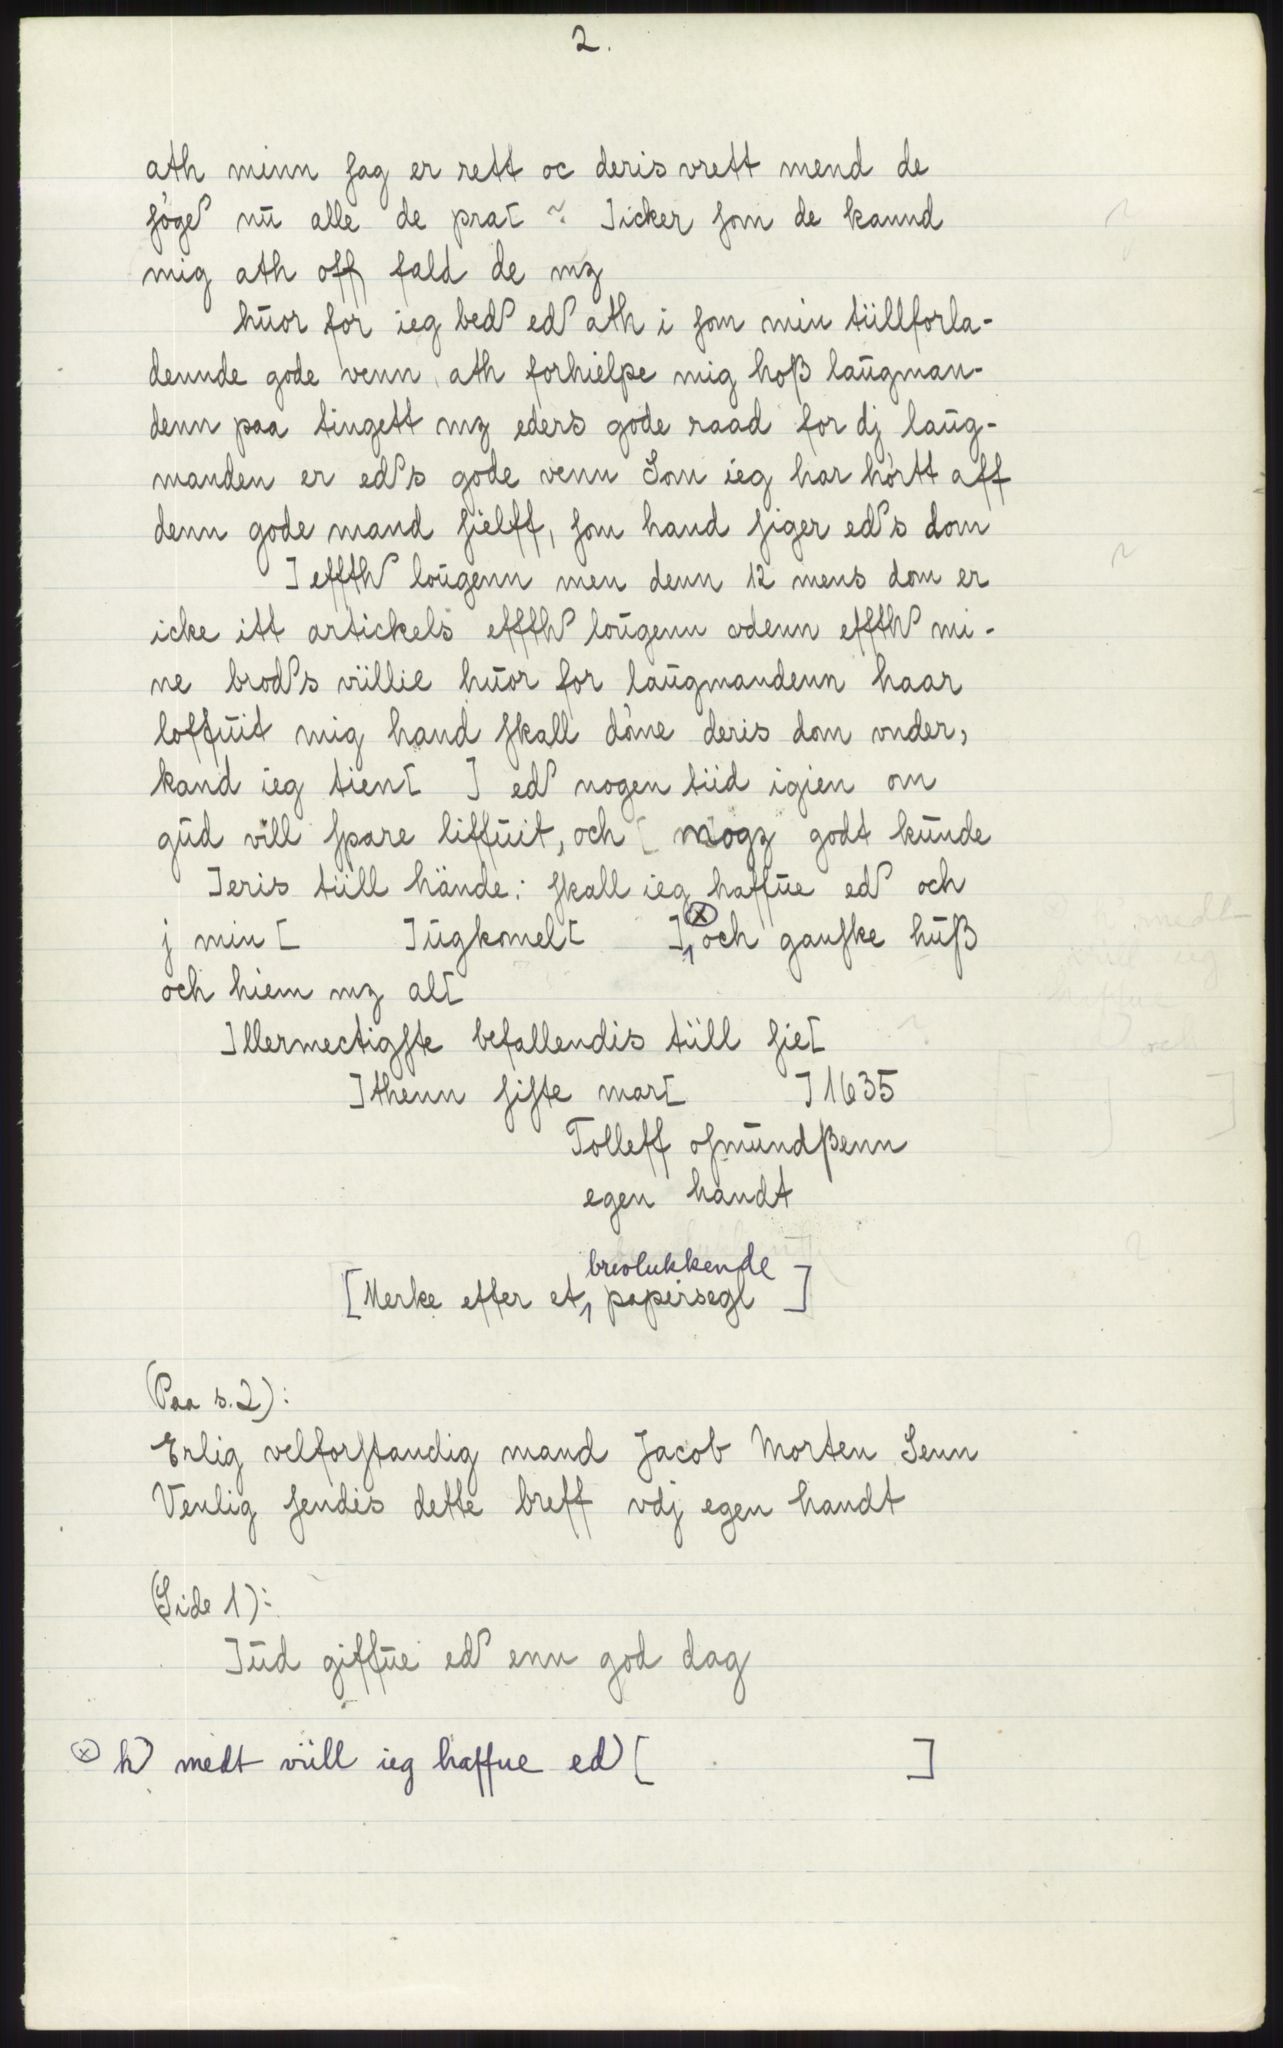 2.
ath minn sag er rett oc deris vrett mend de
søger nu alle de pra[ ~ ]icker som de kannd
mig ath off fald de mz
huor for ieg beder eder ath i som min tüllforla-
dennde gode venn, ath forhielpe mig hoß laugman-
denn paa tingett mz eders gode raad for dj laug-
manden er eders gode venn Som ieg har hørtt aff
denn gode mand sielff, som hand siger eders dom
] effther lougenn men denn 12 mens dom er
icke itt artickels effther lougenn vdenn effther mi-
ne broders vüllie huor for laugmandenn haar
loffuit mig hand skall døme deris dom vnder,
kand ieg tien[ ] eder nogen tiid igien om
gud vill spare liffuit, och [ mogz godt kunde
]eris tüll hände: skall ieg haffue eder och
j min [ ]ugkomel[ ], ⊗ och ganske huß
och hiem mz al[
]llermectigste befallendis tüll sie[
]thenn siste mar[ ] 1635
Tolleff osmundßenn
egen handt
brevlukkende
[Merke efter et papirsegl ]
(Paa s. 2):
Erlig velforstandig mand Jacob Morten Senn
Venlig sendis dette breff vdj egen handt
(Side 1):
]ud giffue eder enn god dag
⊗ her medt vüll ieg haffue eder [ ]